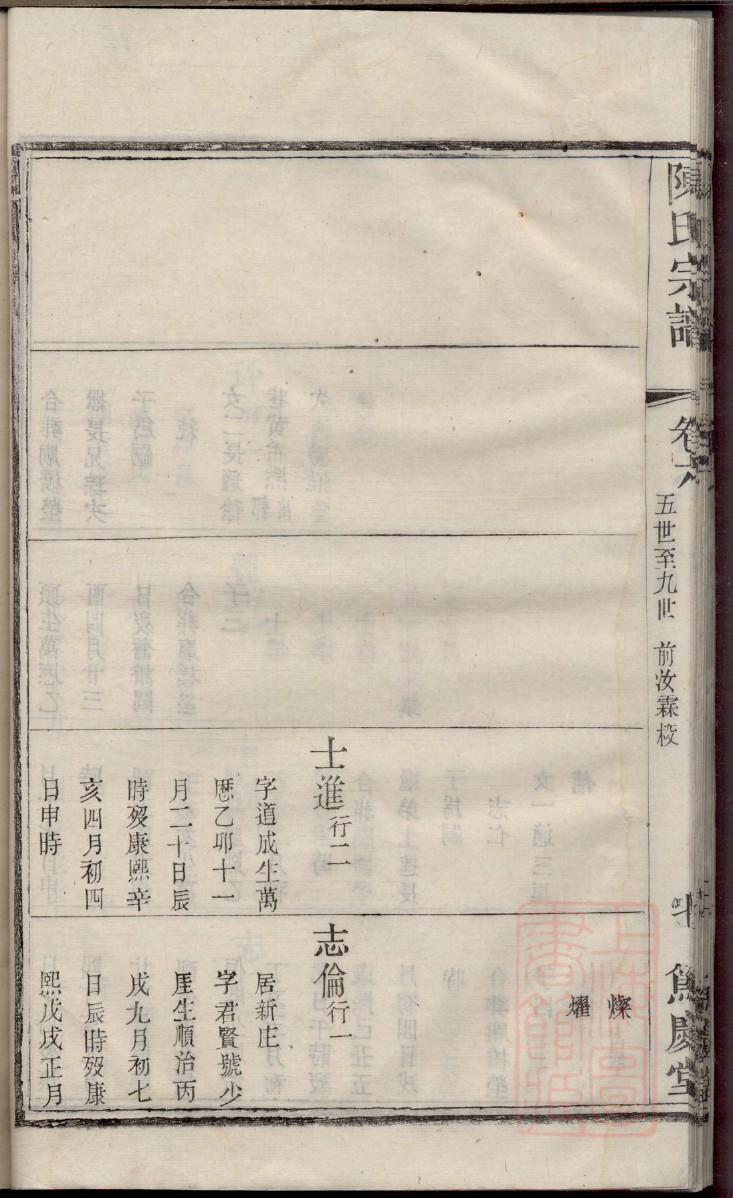 陳氏宗譜
卷六
五世至九世 前汝霖校
十
士進行二
字道成生萬
厯乙卯十一
月二十日辰
時歿康熙辛
亥四月初四
日申時
燦
燿
志倫行一
居新庄
字君賢號少
厓生順治丙
戌九月初七
日辰時歿康
熙戊戌正月